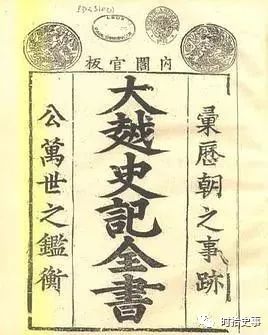 內閣官板
彙歷朝之事跡
大越史記全書
公萬世之鑑衡
时拾史事